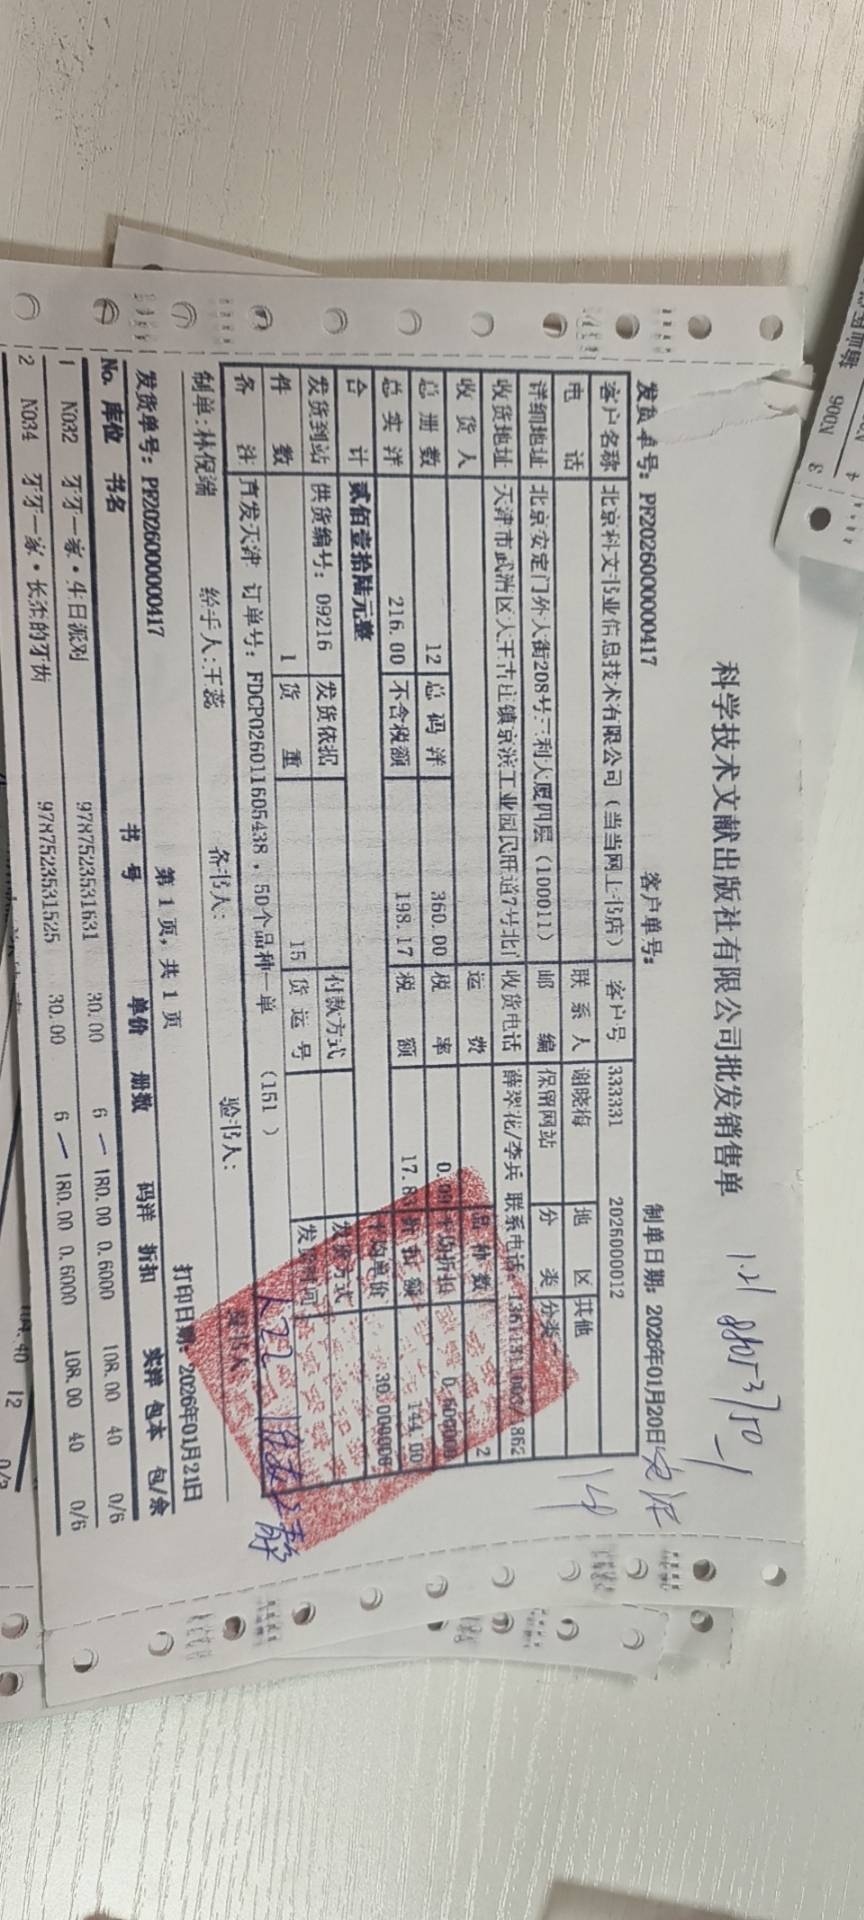 科学技术文献出版社有限公司批发销售单
发货单号：PF2026000000417 客户单号： 制单日期：2026年01月20日
客户名称 北京科文书业信息技术有限公司（当当网上书店） 客户号 333331 2026000012
电 话 联系人 谢晓梅 地 区 其他
详细地址 北京安定门外大街208号三利大厦四层（100011） 邮 编 保留网站 分 类 分类一
收货地址 天津市武清区大王古庄镇京滨工业园民旺道7号北门 收货电话 薛翠花/李兵 联系电话：
收 货 人 运 费 品 种 数 2
总 册 数 12 总 码 洋 360.00 税 率 0.09 平均折扣
总 实 洋 216.00 不含税额 198.17 税 额 17.83 折 扣 额 144.00
合 计 贰佰壹拾陆元整 平均单价 30.000000
发货到站 供货编号：09216 发货依据 付款方式 发货方式
件 数 1 货 重 15 货 运 号 发货时间
备 注 直发天津 订单号：FDCP026011605438，50个品种一单 （151 ）
制单：林倪端 经手人：王蕊 备书人： 验书人：
第 1 页，共 1 页 打印日期：2026年01月21日
发货单号：PF2026000000417
No. 库位 书名 书 号 单价 册数 码洋 折扣 实洋 包本 包/余
1 N032 牙牙一家·生日派对 9787523531631 30.00 6 180.00 0.6000 108.00 40 0/6
2 N034 牙牙一家·长歪的牙齿 9787523531525 30.00 6 180.00 0.6000 108.00 40 0/6